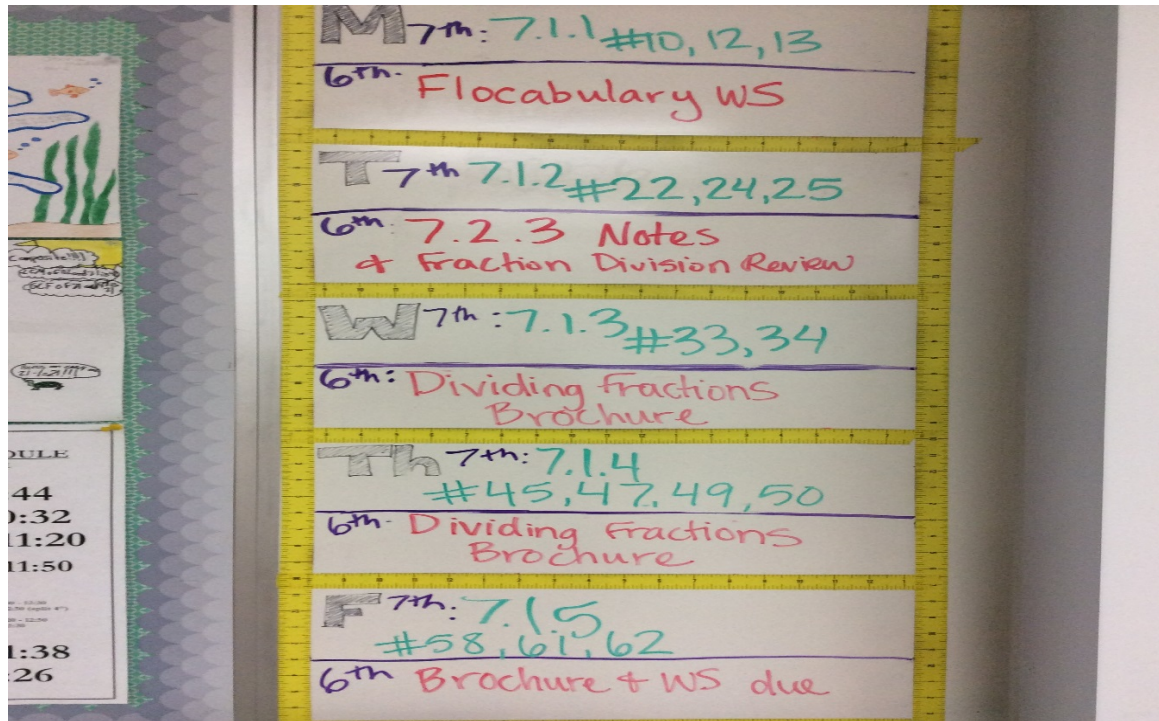 M 7th: 7.1.1 #10, 12, 13
6th. Flocabulary WS
T 7th 7.1.2 #22, 24, 25
6th: 7.2.3 Notes
& Fraction Division Review
W 7th: 7.1.3 #33, 34
6th: Dividing Fractions
Brochure
Th 7th: 7.1.4
#45, 47, 49, 50
6th. Dividing Fractions
Brochure
F 7th: 7.1.5
#58, 61, 62
6th Brochure & WS due
DULE
44
:32
11:20
11:50
1:38
:26